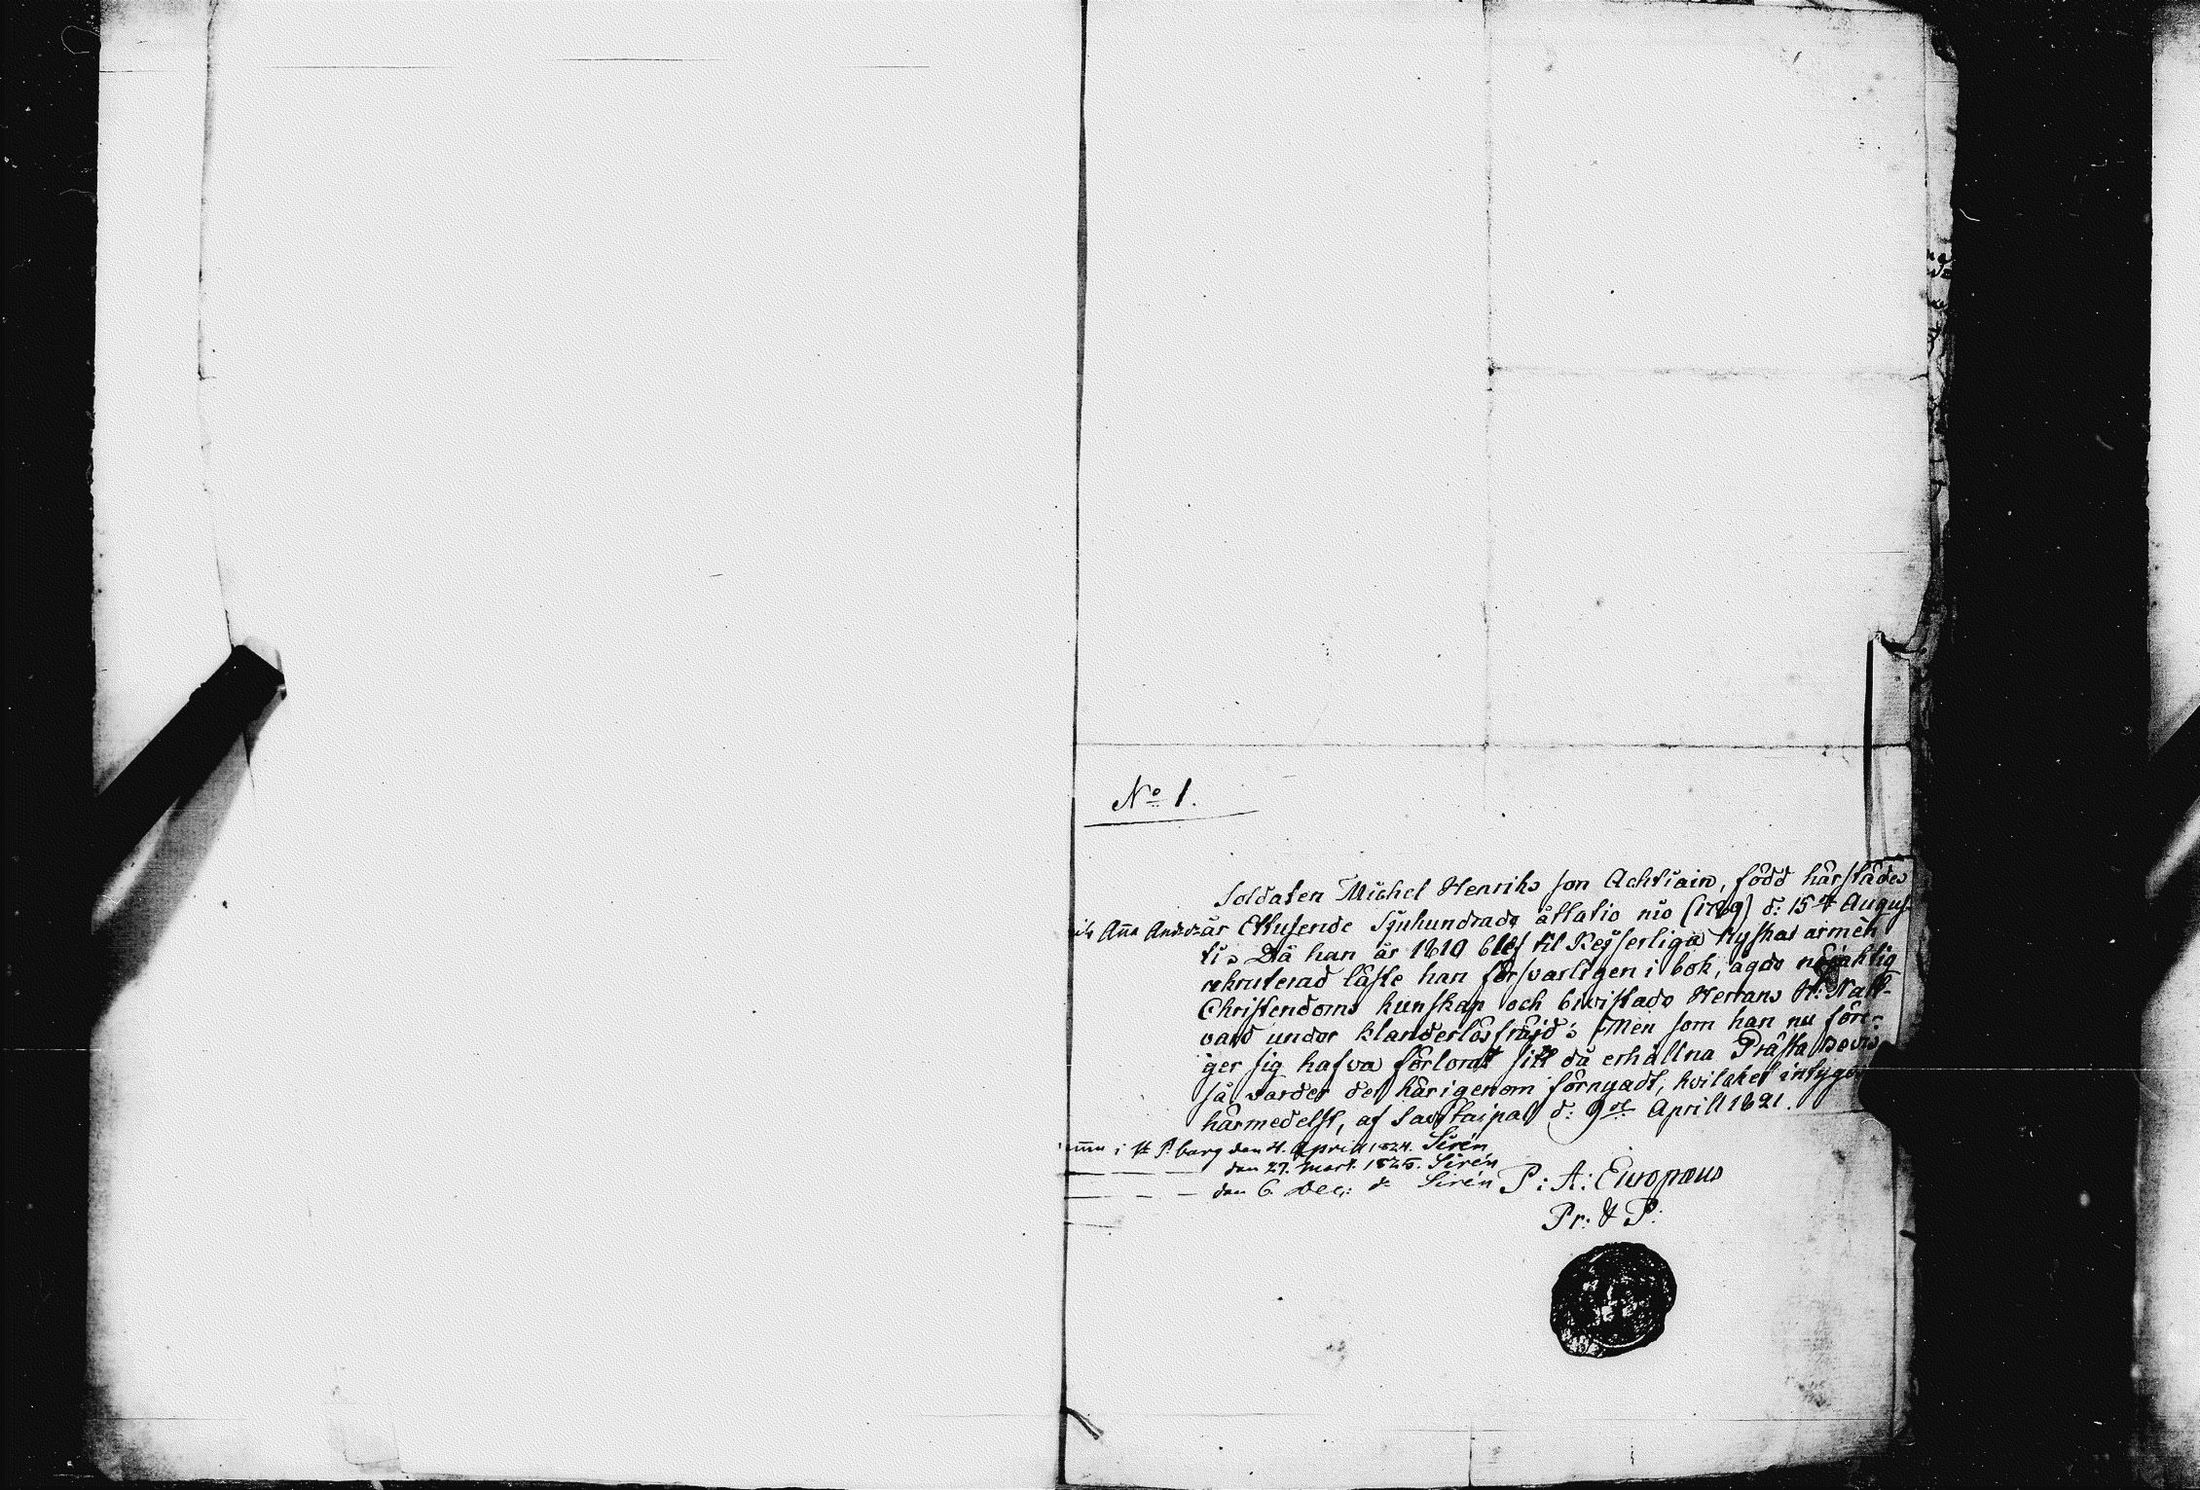 No 1.
Soldaten Michel Henriks son Achtiain, född härstädes
Aña år Ettusende Sjuhundrade åttatio nio (1789) d: 15de Augus-
ti. Då han år 1810 blef til Kejserliga Ryska armén
rekruterad läste han försvarligen i bok, ägde nöjaktig
Christendoms kunskap och bevistade Herrans H: Natt-
vard under klanderlös fräjd. Men som han nu före-
ger sig hafva förlorat sitt då erhållna Prästa bevis
så varder det härigenom förnyadt, hvilcket intygas
härmedelst, af Savitaipal d: 9de Aprill 1821.
i St P.burg den 4. April 1824. Sirén
den 27. Mart. 1825. Sirén
den 6 Dec: do Sirén
P: A: Europæus
Pr: & P: